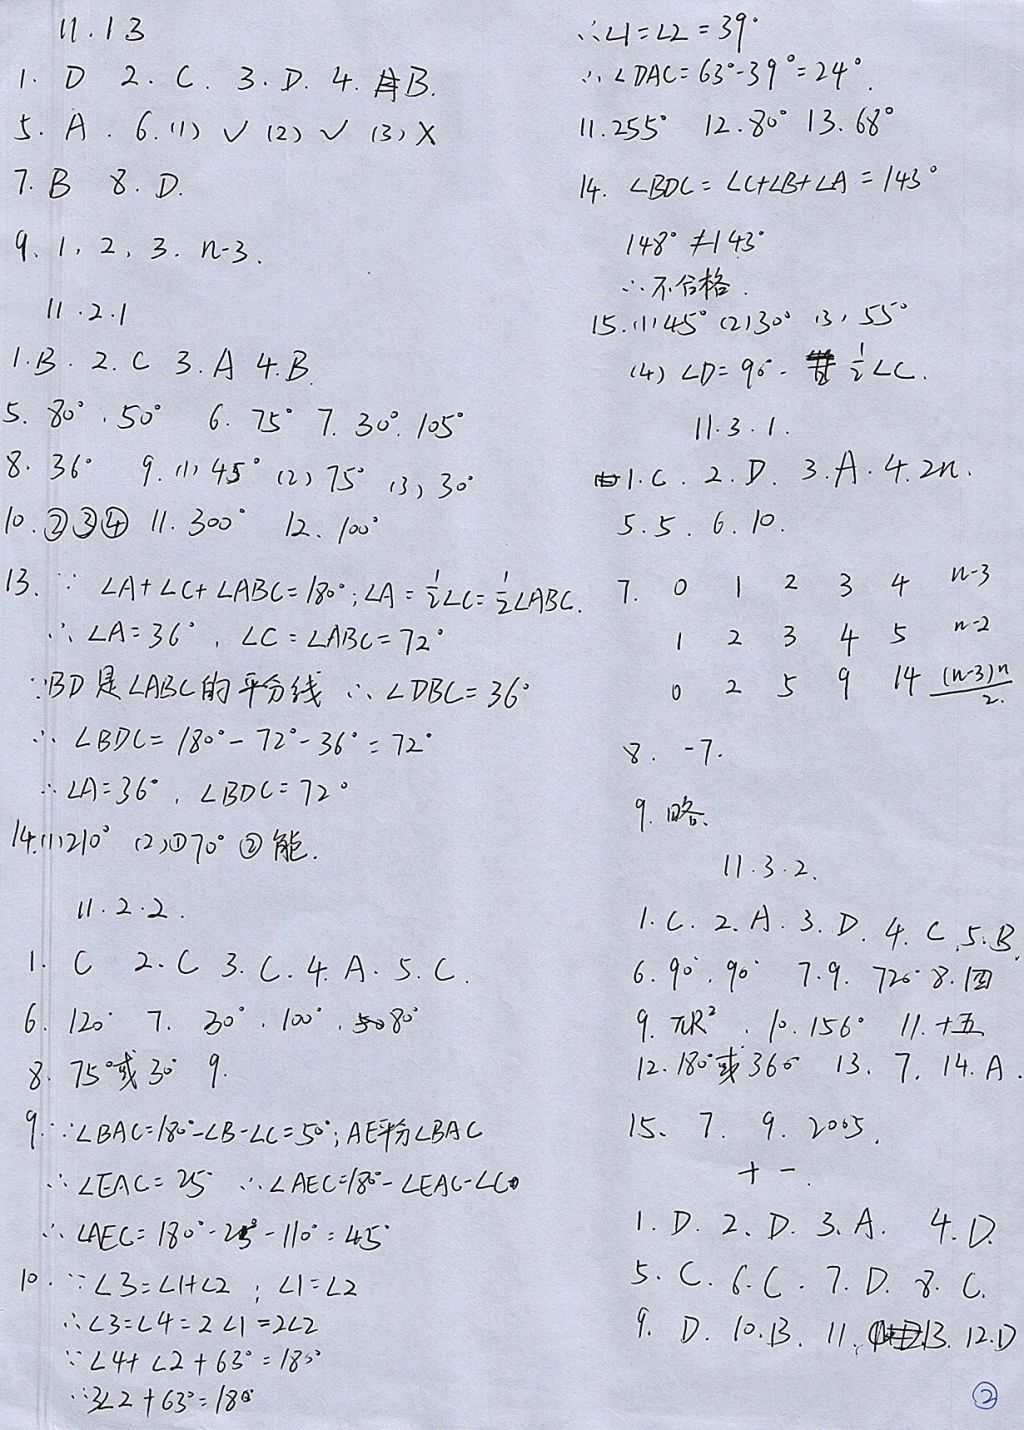 11.1.3
1. D 2. C. 3. D. 4. B.
5. A. 6. (1) √ (2) √ (3) X
7. B 8. D.
9. 1, 2, 3. n-3.
11.2.1
1. B. 2. C 3. A 4. B.
5. 80°. 50° 6. 75° 7. 30°. 105°
8. 36° 9. (1) 45° (2) 75° (3) 30°
10. ②③④ 11. 300° 12. 100°
13. ∵ ∠A+∠C+∠ABC=180°; ∠A=½∠C=½∠ABC.
∴ ∠A=36°, ∠C=∠ABC=72°
∵BD是∠ABC的平分线 ∴ ∠DBC=36°
∴ ∠BDC=180°-72°-36°=72°
∴ ∠A=36°, ∠BDC=72°
14.(1)210° (2)①70° ②能.
11.2.2.
1. C 2. C 3. C. 4. A. 5. C.
6. 120° 7. 30°. 100°. 80°
8. 75°或30° 9.
9. ∵∠BAC=180°-∠B-∠C=50°; AE平分∠BAC
∴ ∠EAC=25° ∴ ∠AEC=180°-∠EAC-∠C
∴ ∠AEC=180°-25°-110°=45°
10. ∵ ∠3=∠1+∠2; ∠1=∠2
∴∠3=∠4=2∠1=2∠2
∵ ∠4+∠2+63°=180°
∴3∠2+63°=180°
∴∠1=∠2=39°
∴ ∠DAC=63°-39°=24°.
11. 255° 12. 80° 13. 68°
14. ∠BDC=∠C+∠B+∠A=143°
148°≠143°
∴不合格.
15. (1)45° (2)30° (3) 55°
(4) ∠D=90°-½∠C.
11.3.1.
1. C. 2. D. 3. A. 4. 2n.
5. 5. 6. 10.
7. 0 1 2 3 4 n-3
1 2 3 4 5 n-2
0 2 5 9 14 (n-3)n/2.
8. -7.
9. 略.
11.3.2.
1. C. 2. A. 3. D. 4. C. 5. B.
6. 90°. 90° 7. 9. 720° 8. 四
9. πR². 10. 156° 11. 十五
12. 180°或360° 13. 7. 14. A.
15. 7. 9. 2005.
十一.
1. D. 2. D. 3. A. 4. D.
5. C. 6. C. 7. D. 8. C.
9. D. 10. B. 11. B. 12. D
②